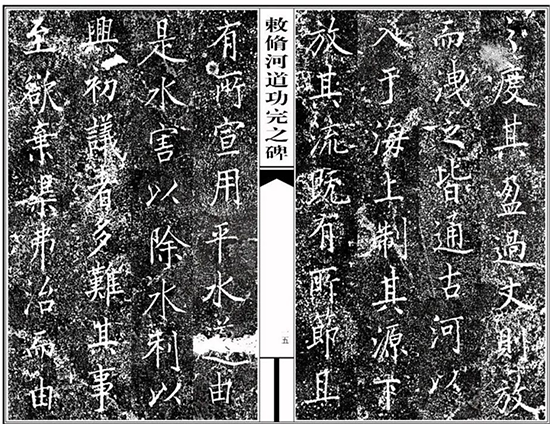 度其盈過丈則放
而洩之皆通古河以
入于海上制其源下
放其流既有所節且
敕脩河道功完之碑
一五
有所宣用平水由
是水害以除水利以
興初議者多難其事
至欲棄渠弗治而由